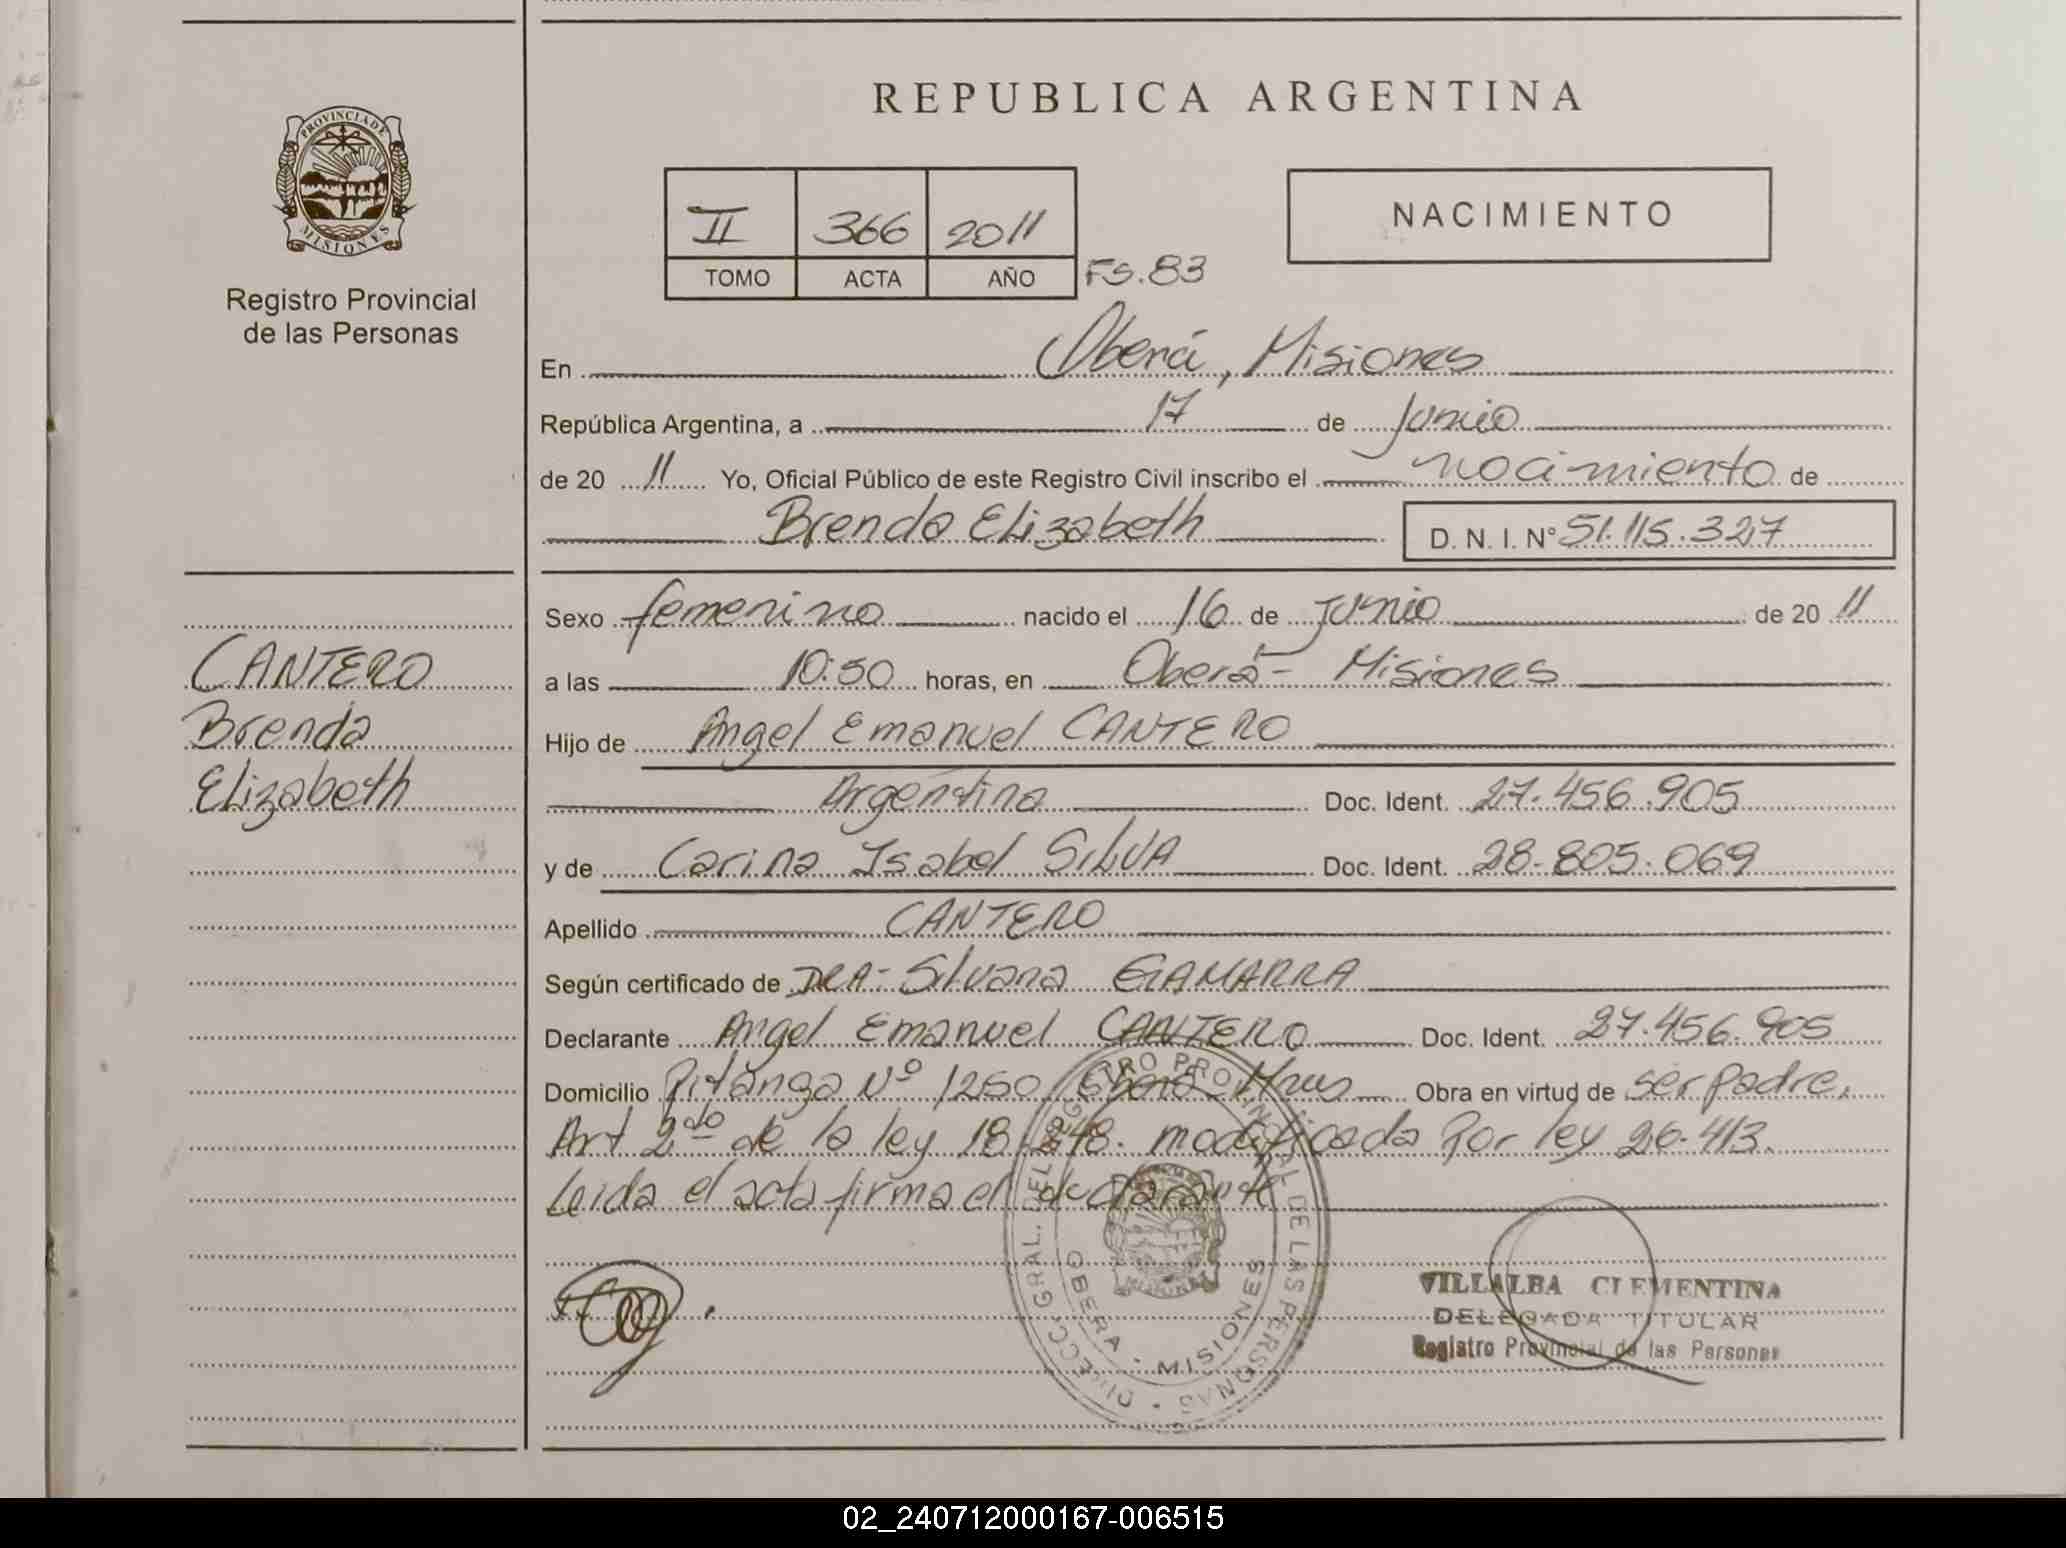 REPUBLICA ARGENTINA
PROVINCIA DE MISIONES
Registro Provincial
de las Personas
II 366 2011
TOMO ACTA AÑO FS.83
NACIMIENTO
En Oberá, Misiones
República Argentina, a 17 de Junio
de 20 11 Yo, Oficial Público de este Registro Civil inscribo el nacimiento de
Brenda Elizabeth D. N. I. Nº 51.115.327
Sexo femenino nacido el 16 de Junio de 20 11
a las 10:50 horas, en Oberá - Misiones
Hijo de Angel Emanuel CANTERO
Argentina Doc. Ident. 27.456.905
y de Carina Isabel SILVA Doc. Ident. 28.805.069
Apellido CANTERO
Según certificado de DRA- Silvana GAMARRA
Declarante Angel Emanuel CANTERO Doc. Ident. 27.456.905
Domicilio Pitanga Nº 1250 Oberá Mnes Obra en virtud de ser Padre.
Art 2do de la ley 18.248. modificada Por ley 26.413.
Leida el acta firma el declarante
CANTERO
Brenda
Elizabeth
DIRECC. GRAL. DEL REGISTRO PROVINCIAL DE LAS PERSONAS
OBERA - MISIONES
VILLALBA CLEMENTINA
DELEGADA TITULAR
Registro Provincial de las Personas
02_240712000167-006515